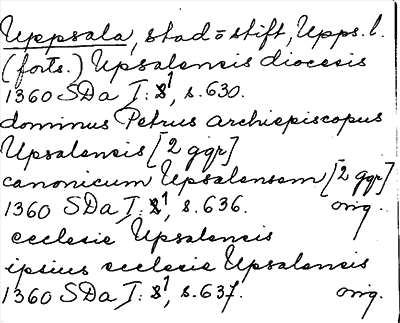 Uppsala, stad o stift, Upps. l.
(forts.) Upsalensis diocesis
1360 SDa I: 1, s. 630.
dominus Petrus archiepiscopus
Upsalensis [2 ggr]
canonicum Upsalensem [2 ggr]
1360 SDa I: 1, s. 636. orig.
ecclesie Upsalensis
ipsius ecclesie Upsalensis
1360 SDa I: 1, s. 637. orig.